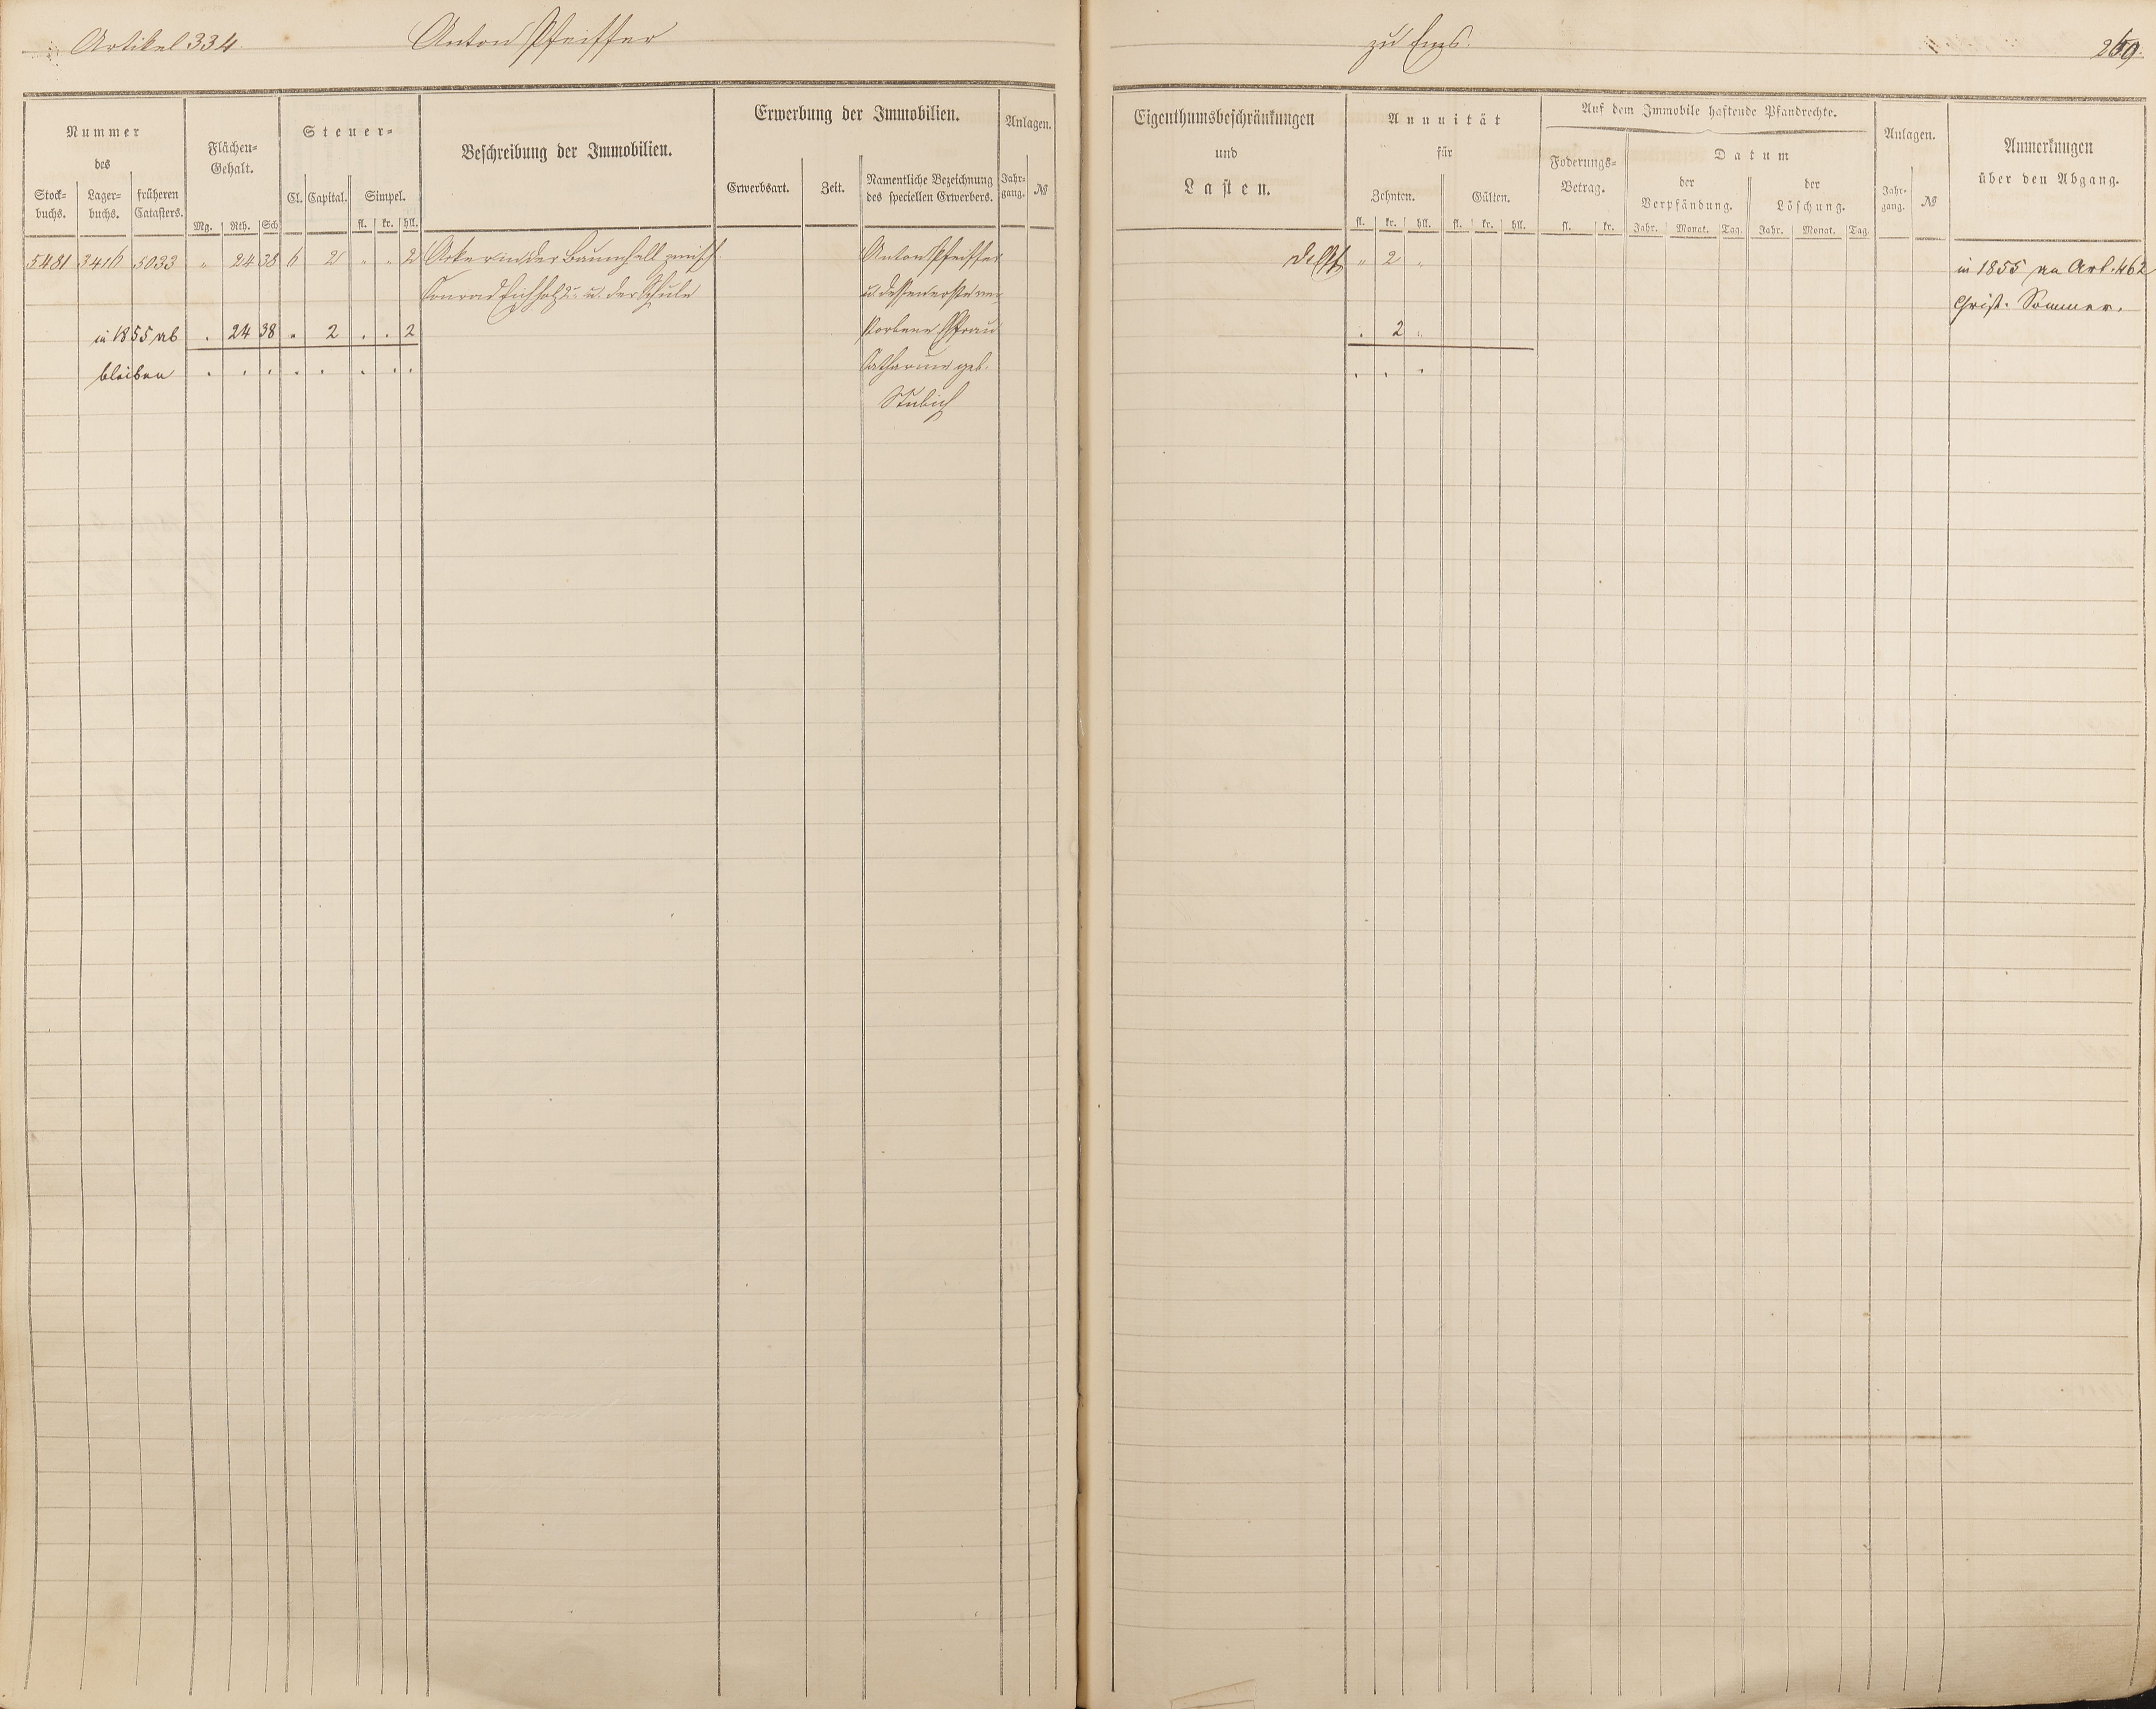 Artikel 334. Anton Pfeiffer zu Ems. 269
Nummer
des
Stock-buchs. Lager-buchs. früheren Catasters.
Flächen-Gehalt.
Mg. Rth. Sch
Steuer-
Cl. Capital. Simpel.
fl. kr. hll.
Beschreibung der Immobilien.
Erwerbung der Immobilien.
Erwerbsart. Zeit. Namentliche Bezeichnung des speciellen Erwerbers.
Anlagen.
Jahr-gang. №
Eigenthumsbeschränkungen
und
Lasten.
Annuität
für
Zehnten. Gülten.
fl. kr. hll. fl. kr. hll.
Auf dem Immobile haftende Pfandrechte.
Foderungs-Betrag.
fl. kr.
Datum
der Verpfändung. der Löschung.
Jahr. Monat. Tag. Jahr. Monat. Tag.
Anlagen.
Jahr-gang. №
Anmerkungen
über den Abgang.
5481 3416 5033 " 24 38 6 2 " " 2 Acker in der Baumhell zwisch. Anton Pfeiffer " 2 " in 1855 an Art. 462
Conrad Eichholz 2r u. der Schule u. dessen erste ver- Christ. Sommer.
in 1855 ab . 24 38 . 2 . . 2 storbene Ehefrau . 2 .
bleiben . . . . . . . . Catharine geb. . . .
Stubich